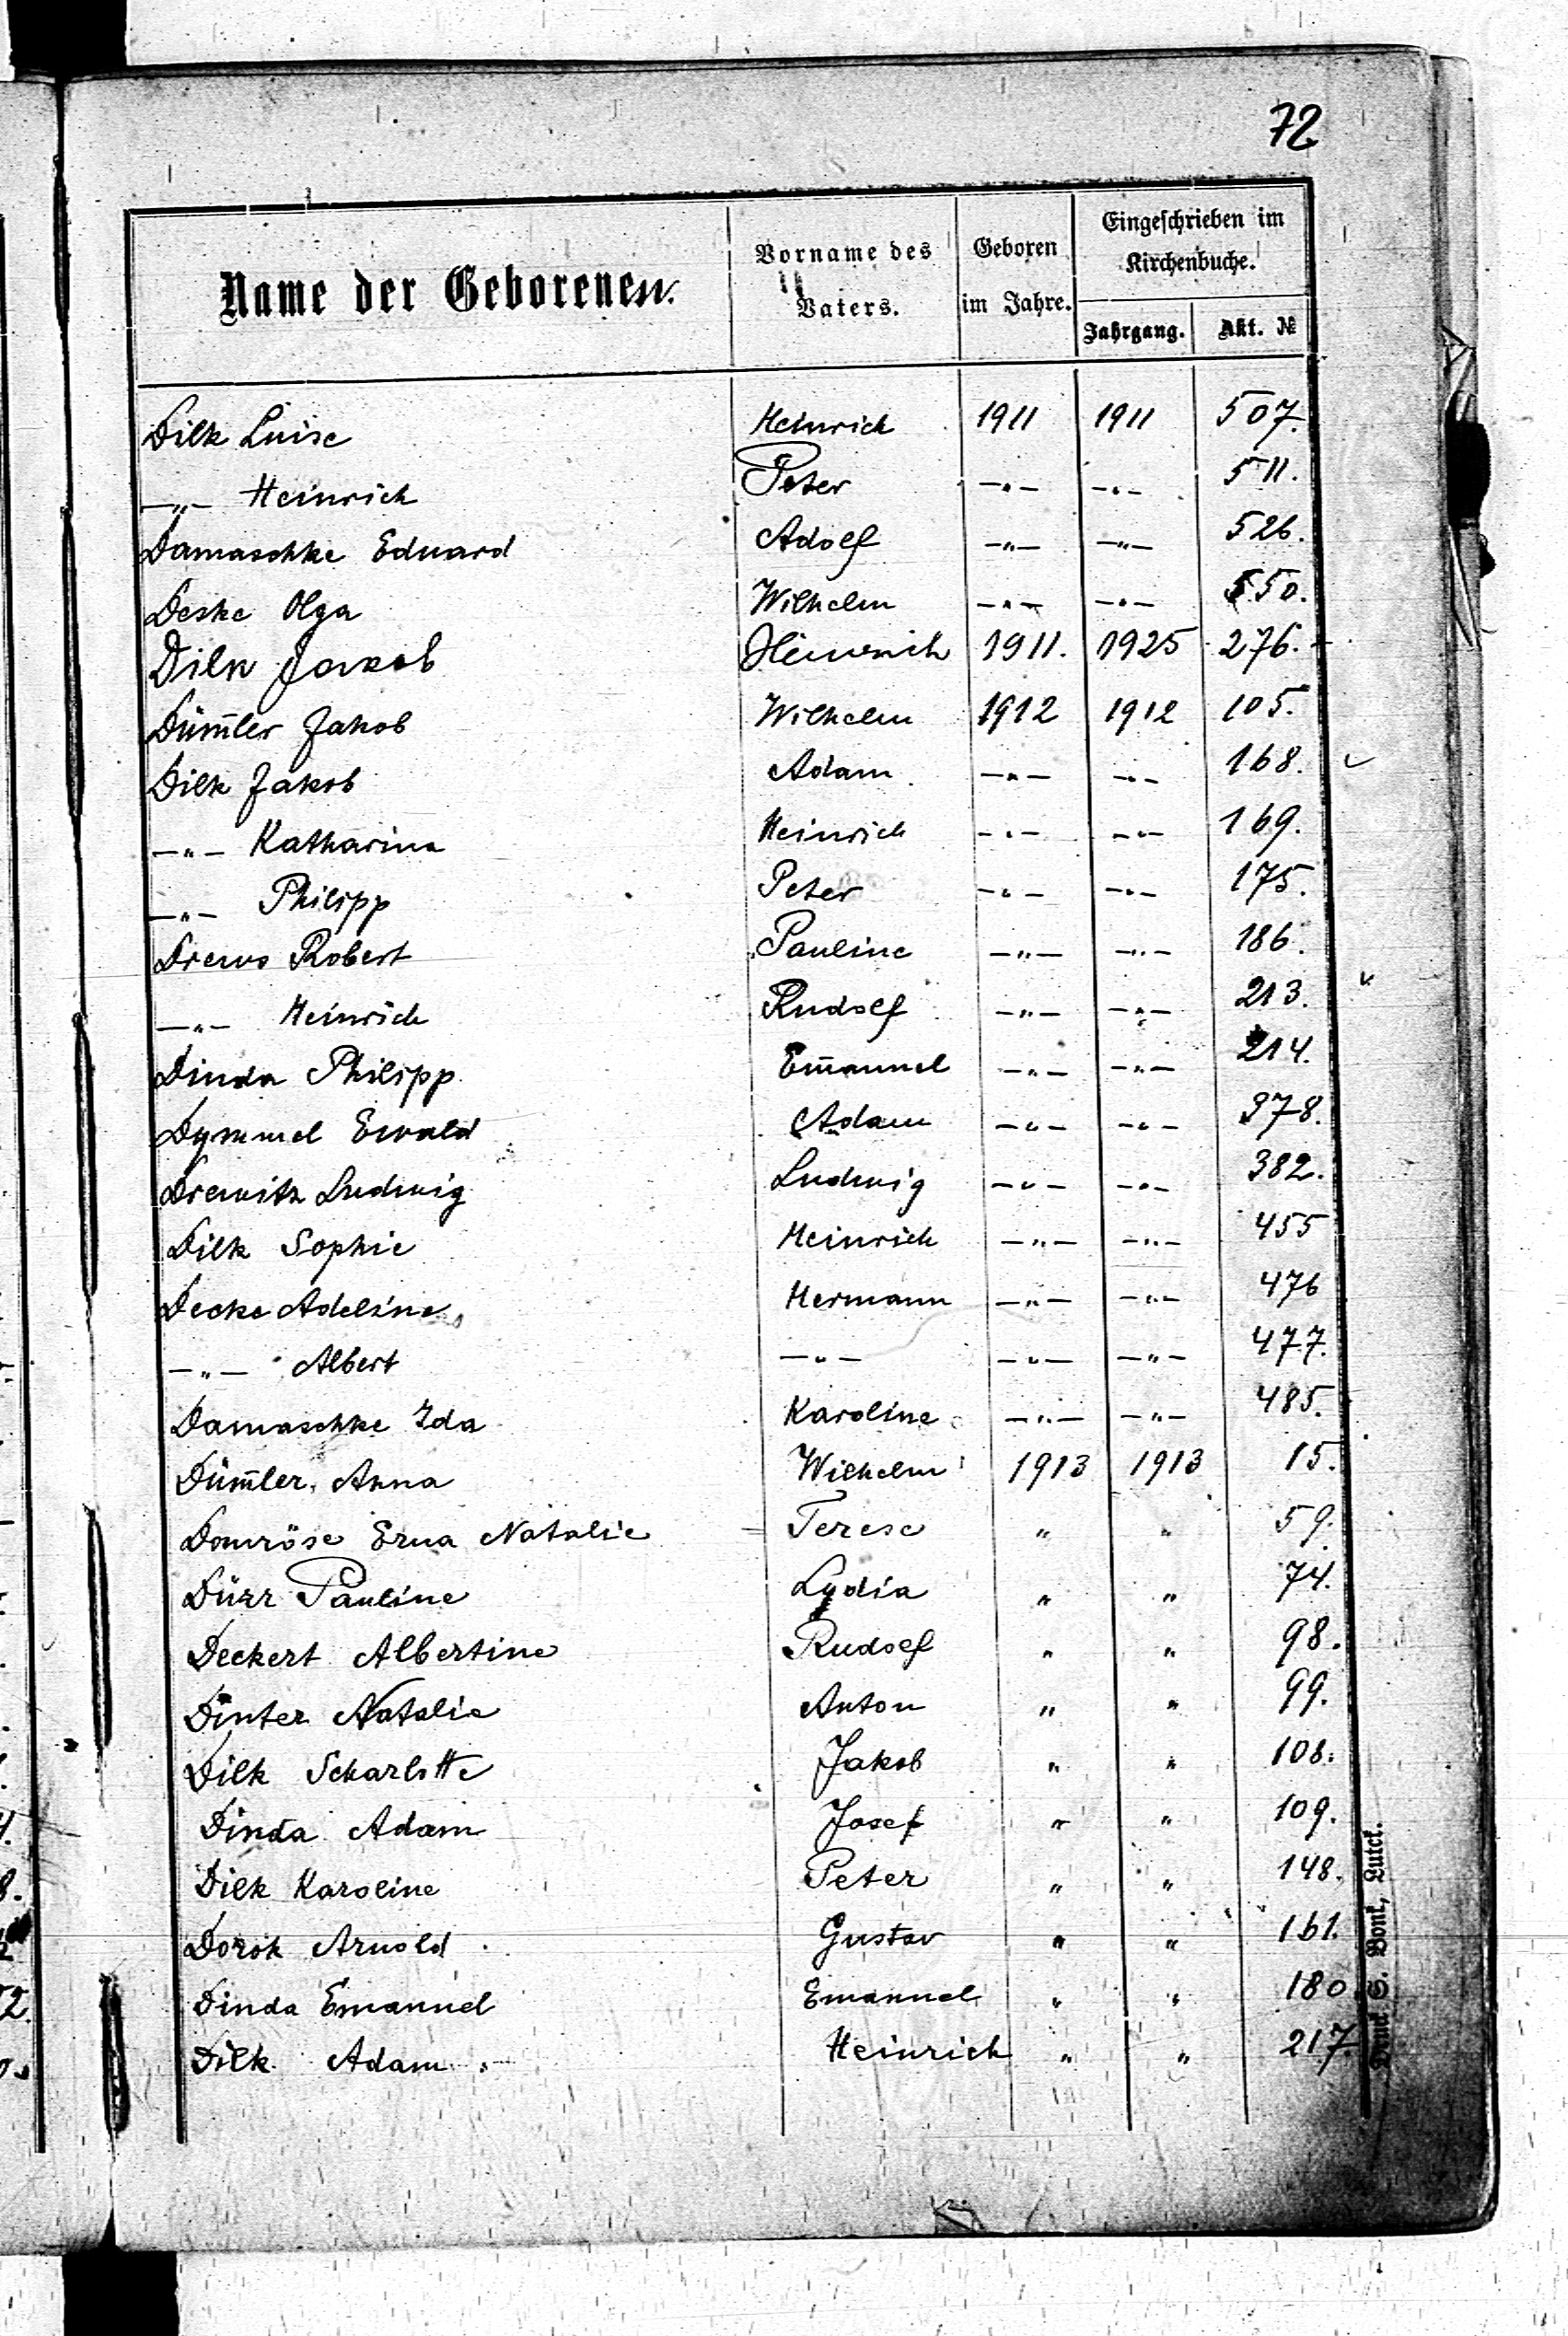 72
Name der Geborenen.
Vorname des Vaters.
Geboren im Jahre.
Eingeschrieben im Kirchenbuche.
Jahrgang. Akt. №
Dilk Luise Heinrich 1911 1911 507.
—„— Heinrich Peter —„— —„— 511.
Damaschke Eduard Adolf —„— —„— 526.
Deske Olga Wilhelm —„— —„— 550.
Dilk Jakob Heinrich 1911. 1925 276.
Düm̅ler Jakob Wilhelm 1912 1912 105.
Dilk Jakob Adam —„— —„— 168.
—„— Katharina Heinrich —„— —„— 169.
—„— Philipp Peter —„— —„— 175.
Drews Robert Pauline —„— —„— 186.
—„— Heinrich Rudolf —„— —„— 213.
Dinda Philipp Em̅anuel —„— —„— 214.
Dymmel Ewald Adam —„— —„— 378.
Drewitz Ludwig Ludwig —„— —„— 382.
Dilk Sophie Heinrich —„— —„— 455
Decke Adeline Hermann —„— —„— 476
—„— Albert —„— —„— —„— 477.
Damaschke Ida Karoline —„— —„— 485.
Düm̅ler, Anna Wilhelm 1913 1913 15.
Domröse Erna Natalie Terese „ „ 59.
Dürr Pauline Lydia „ „ 74.
Deckert Albertine Rudolf „ „ 98.
Dinter Natalie Anton „ „ 99.
Dilk Scharlotte Jakob „ „ 108.
Dinda Adam Josef „ „ 109.
Dilk Karoline Peter „ „ 148.
Dorok Arnold Gustav „ „ 161.
Dinda Emanuel Emanuel „ „ 180.
Dilk Adam Heinrich „ „ 217.
Druck S. Bonk, Lutck.